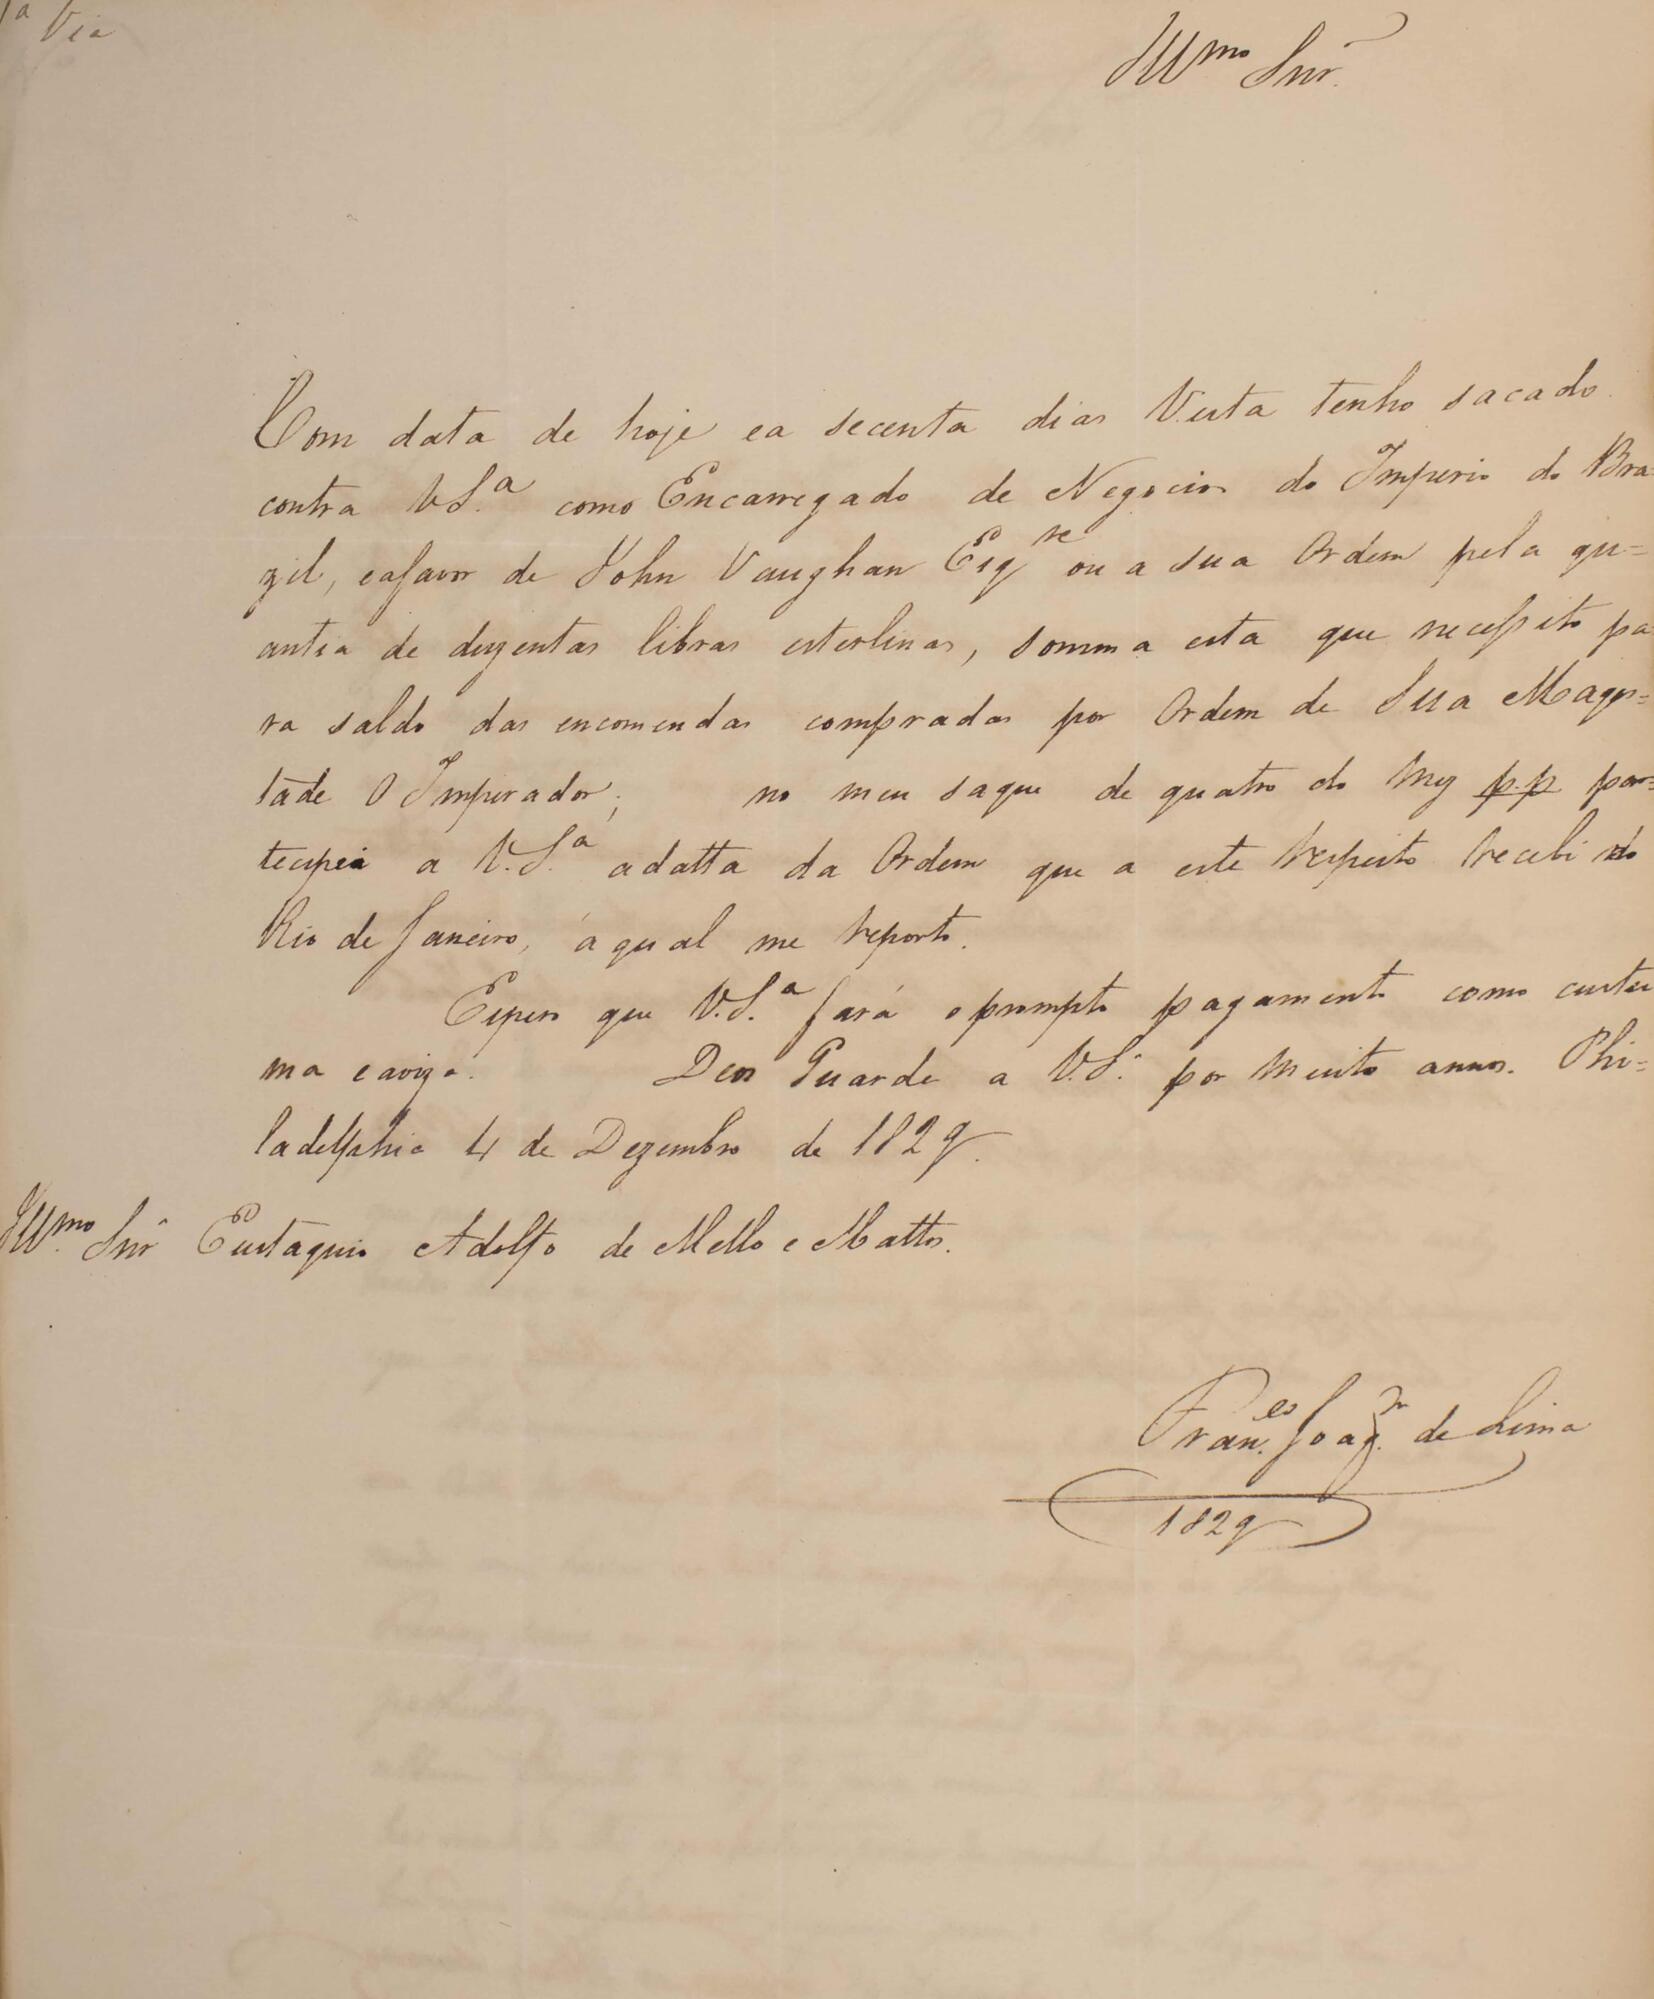 1ª Via
Illmo Snr.
Com data de hoje ea secenta dias Vista tenho sacado
contra V.S.ª como Encarregado de Negocios do Imperio do Bra-
zil, eafavor de John Vaughan Esqre ou a sua Ordem pela qu=
antia de duzentas libras esterlinas, somma esta que necessito pa-
ra saldo das encomendas compradas por Ordem de Sua Mages=
tade O Imperador; no meu saque de quatro do mez p.p. par=
tecipei a V.S.ª adatta da Ordem que a este respeito recebi do
Rio de Janeiro, á qual me reporto.
Espero que V.S.ª fará o prompto pagamento como custu
ma e avizo. Deos Guarde a V.S.ª por muito annos. Phi=
ladelphia 4 de Dezembro de 1829.
Illmo. Snr Eustaquio Adolfo de Mello e Mattos.
Fran.co Joaq.m de Lima
1829